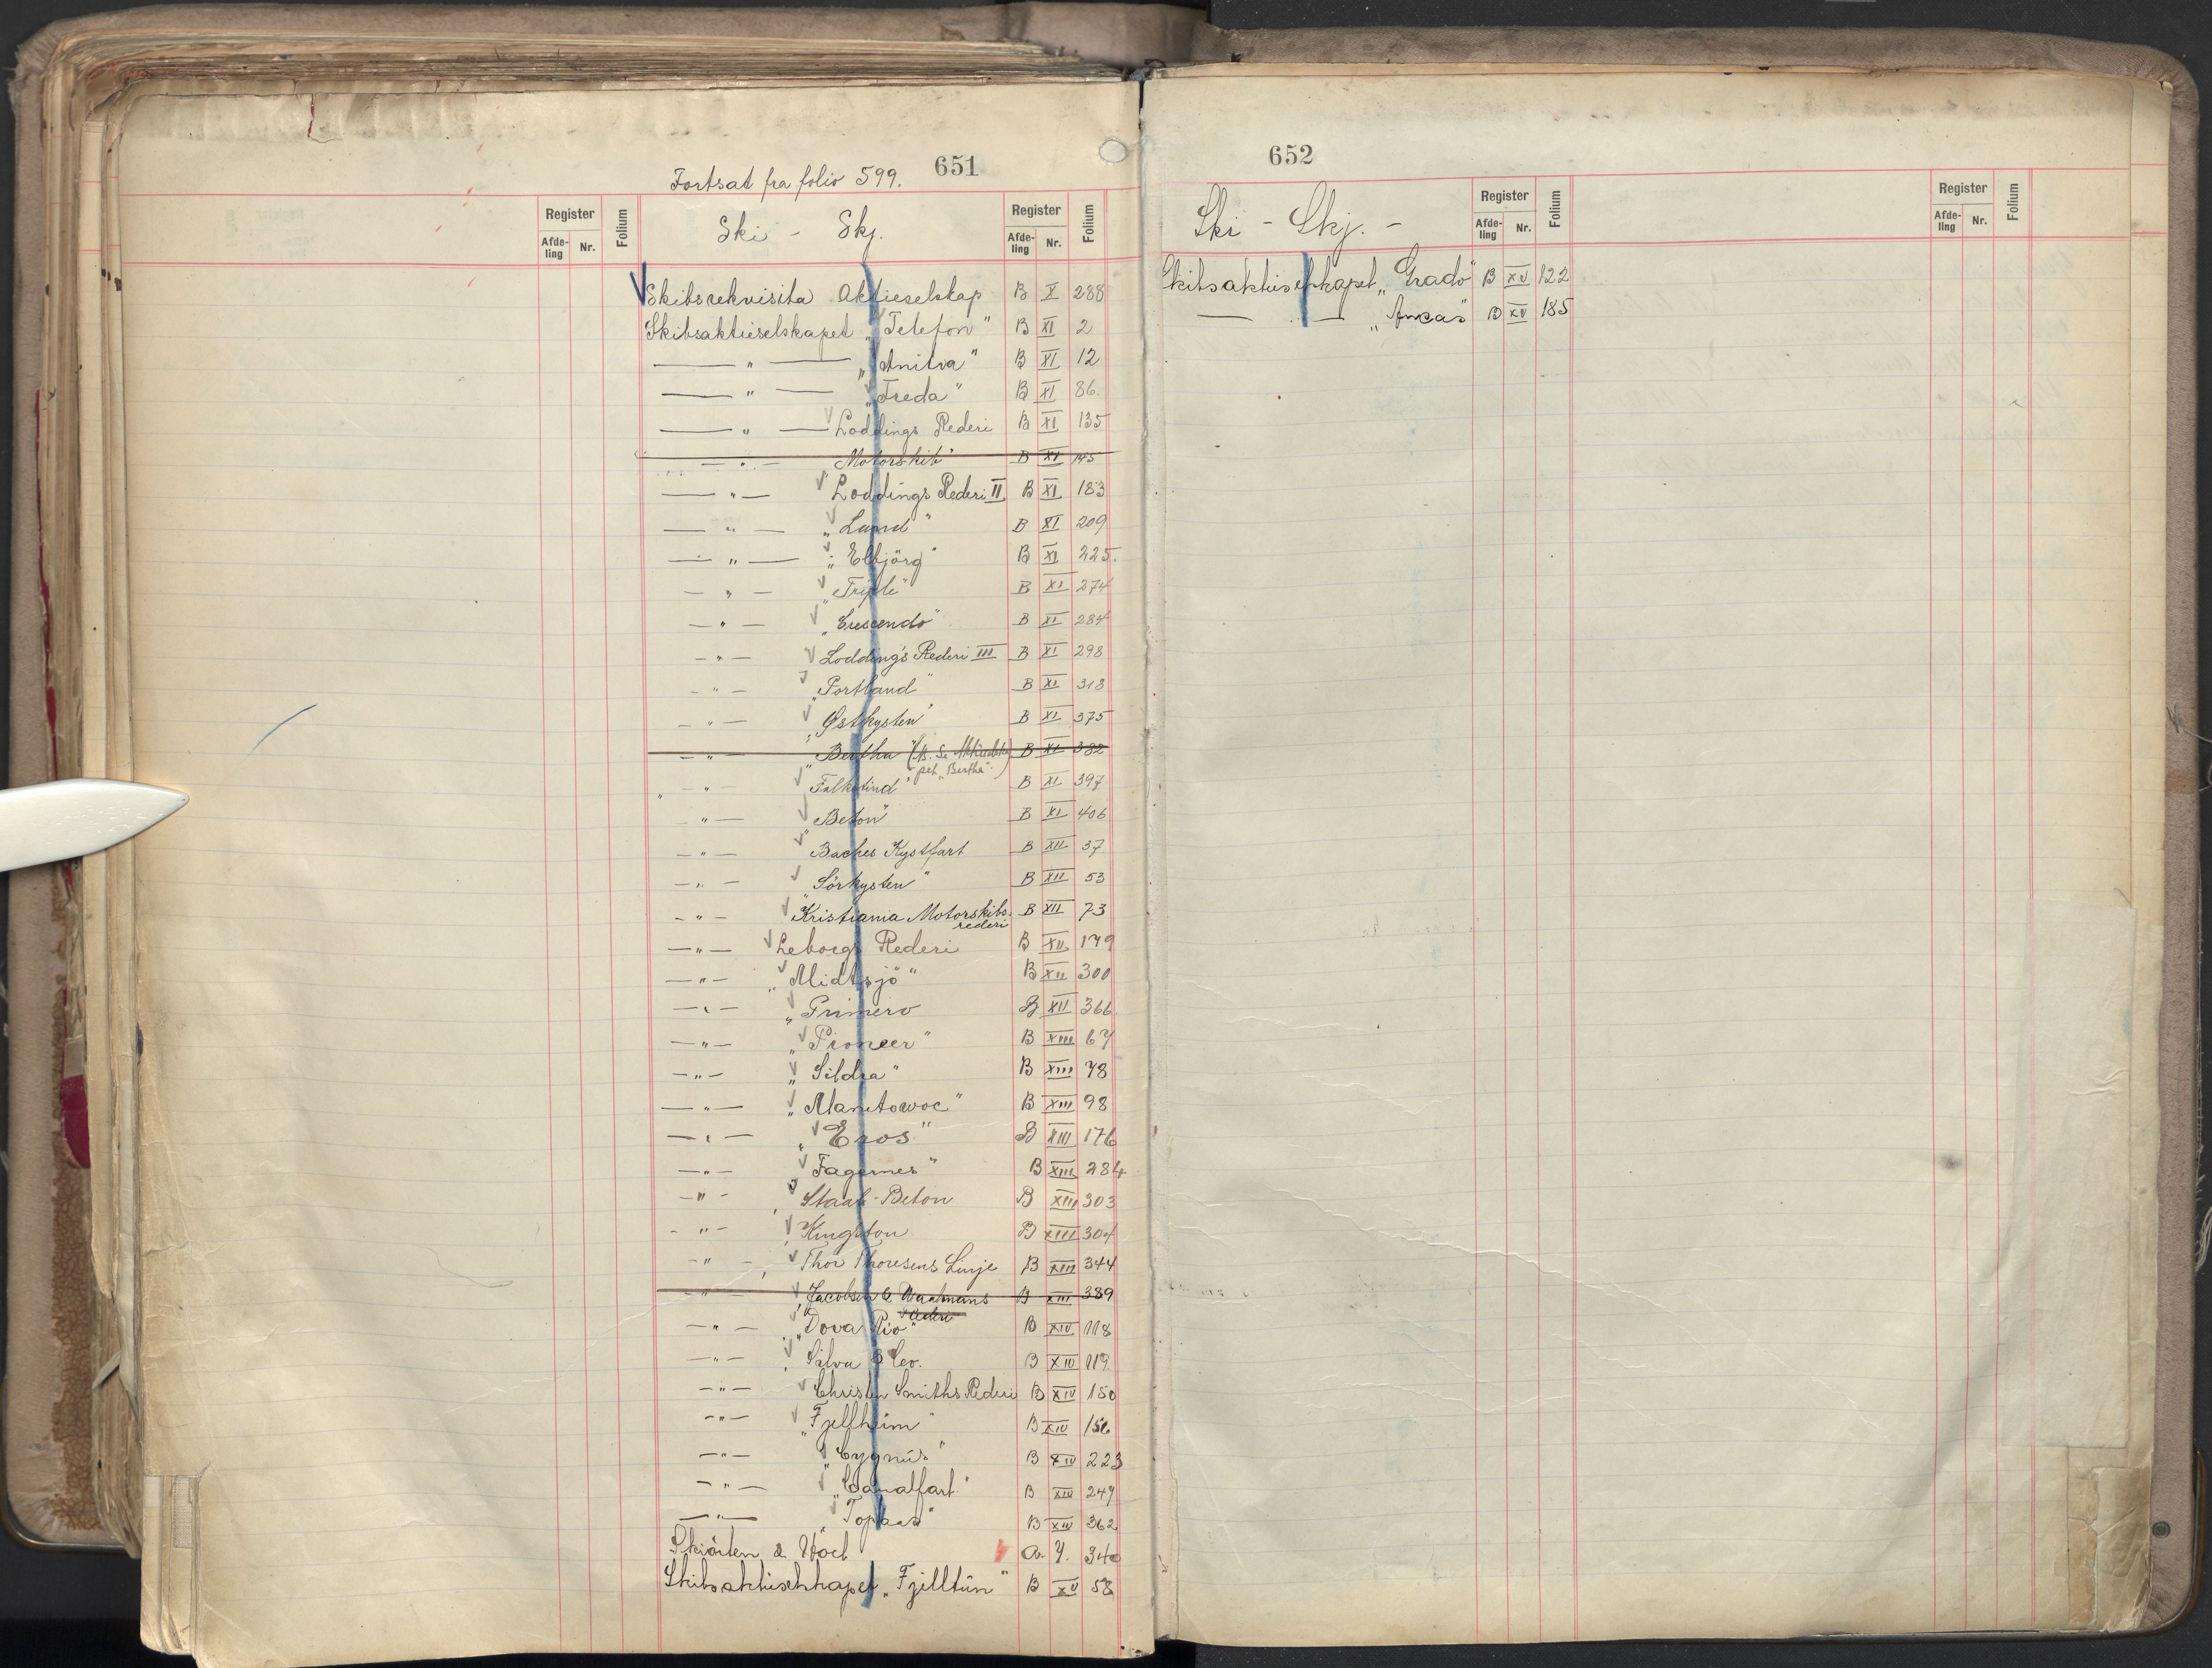 651
Fortsat fra folio 599.
Register
Afde-
ling
Nr.
Folium
Ski - Skj.
Register
Afde-
ling
Nr.
Folium
Skibsrekvisita Aktieselskap B X 288
Skibsaktieselskapet „Telefon" B XI 2
— " — „Anitra" B XI 12
— " — „Freda" B XI 86.
— " — Loddings Rederi B XI 135
— " — Motorskib" B XI 145
— " — Loddings Rederi II B XI 183
— " — „Lund" B XI 209
— " — „Elbjörg" B XI 225.
— " — „Triple" B XI 274
— " — „Crescendo" B XI 284
— " — Lodding's Rederi III B XI 298
— " — „Portland" B XI 318
— " — „Østkysten" B XI 375
— " — „Bertha" B XI 382
pet „Bertha".
— " — „Falketind" B XI 397
— " — „Beton" B XI 406
— " — Baches Kystfart B XII 37
— " — „Sörkysten" B XII 53
— " — Kristiania Motorskibs- B XII 73
rederi
— " — Leborgs Rederi B XII 179
— " — „Midtsjö" B XII 300
— " — „Primero B XII 366
— " — „Pioneer" B XIII 67
— " — „Sildra" B XIII 78
— " — „Manitowoc" B XIII 98
— " — „Eros" B XIII 176
— " — „Fagernes" B XIII 284
— " — Staal-Beton B XIII 303
— " — Kingston B XIII 304
— " — Thor Thoresens Linje B XIII 344
— " — Jacobsen & Waatmans B XIII 389
Rederi
— " — „Dova Rio" B XIV 118
— " — Silva & Leo. B XIV 119.
— " — Christen Smiths Rederi B XIV 150
— " — „Fjellheim" B XIV 156
— " — „Cygnus" B XIV 223
— " — „Canalfart" B XIV 249
— " — „Topaas" B XIV 362
Skiörten & Höel Av. Y. 340
Skibsaktieselskapet „Fjelltun" B XV 58
652
Ski - Skj. -
Register
Afde-
ling
Nr.
Folium
Register
Afde-
ling
Nr.
Folium
Skibsaktieselskapet „Grado" B XV 122
— " — B XV 185